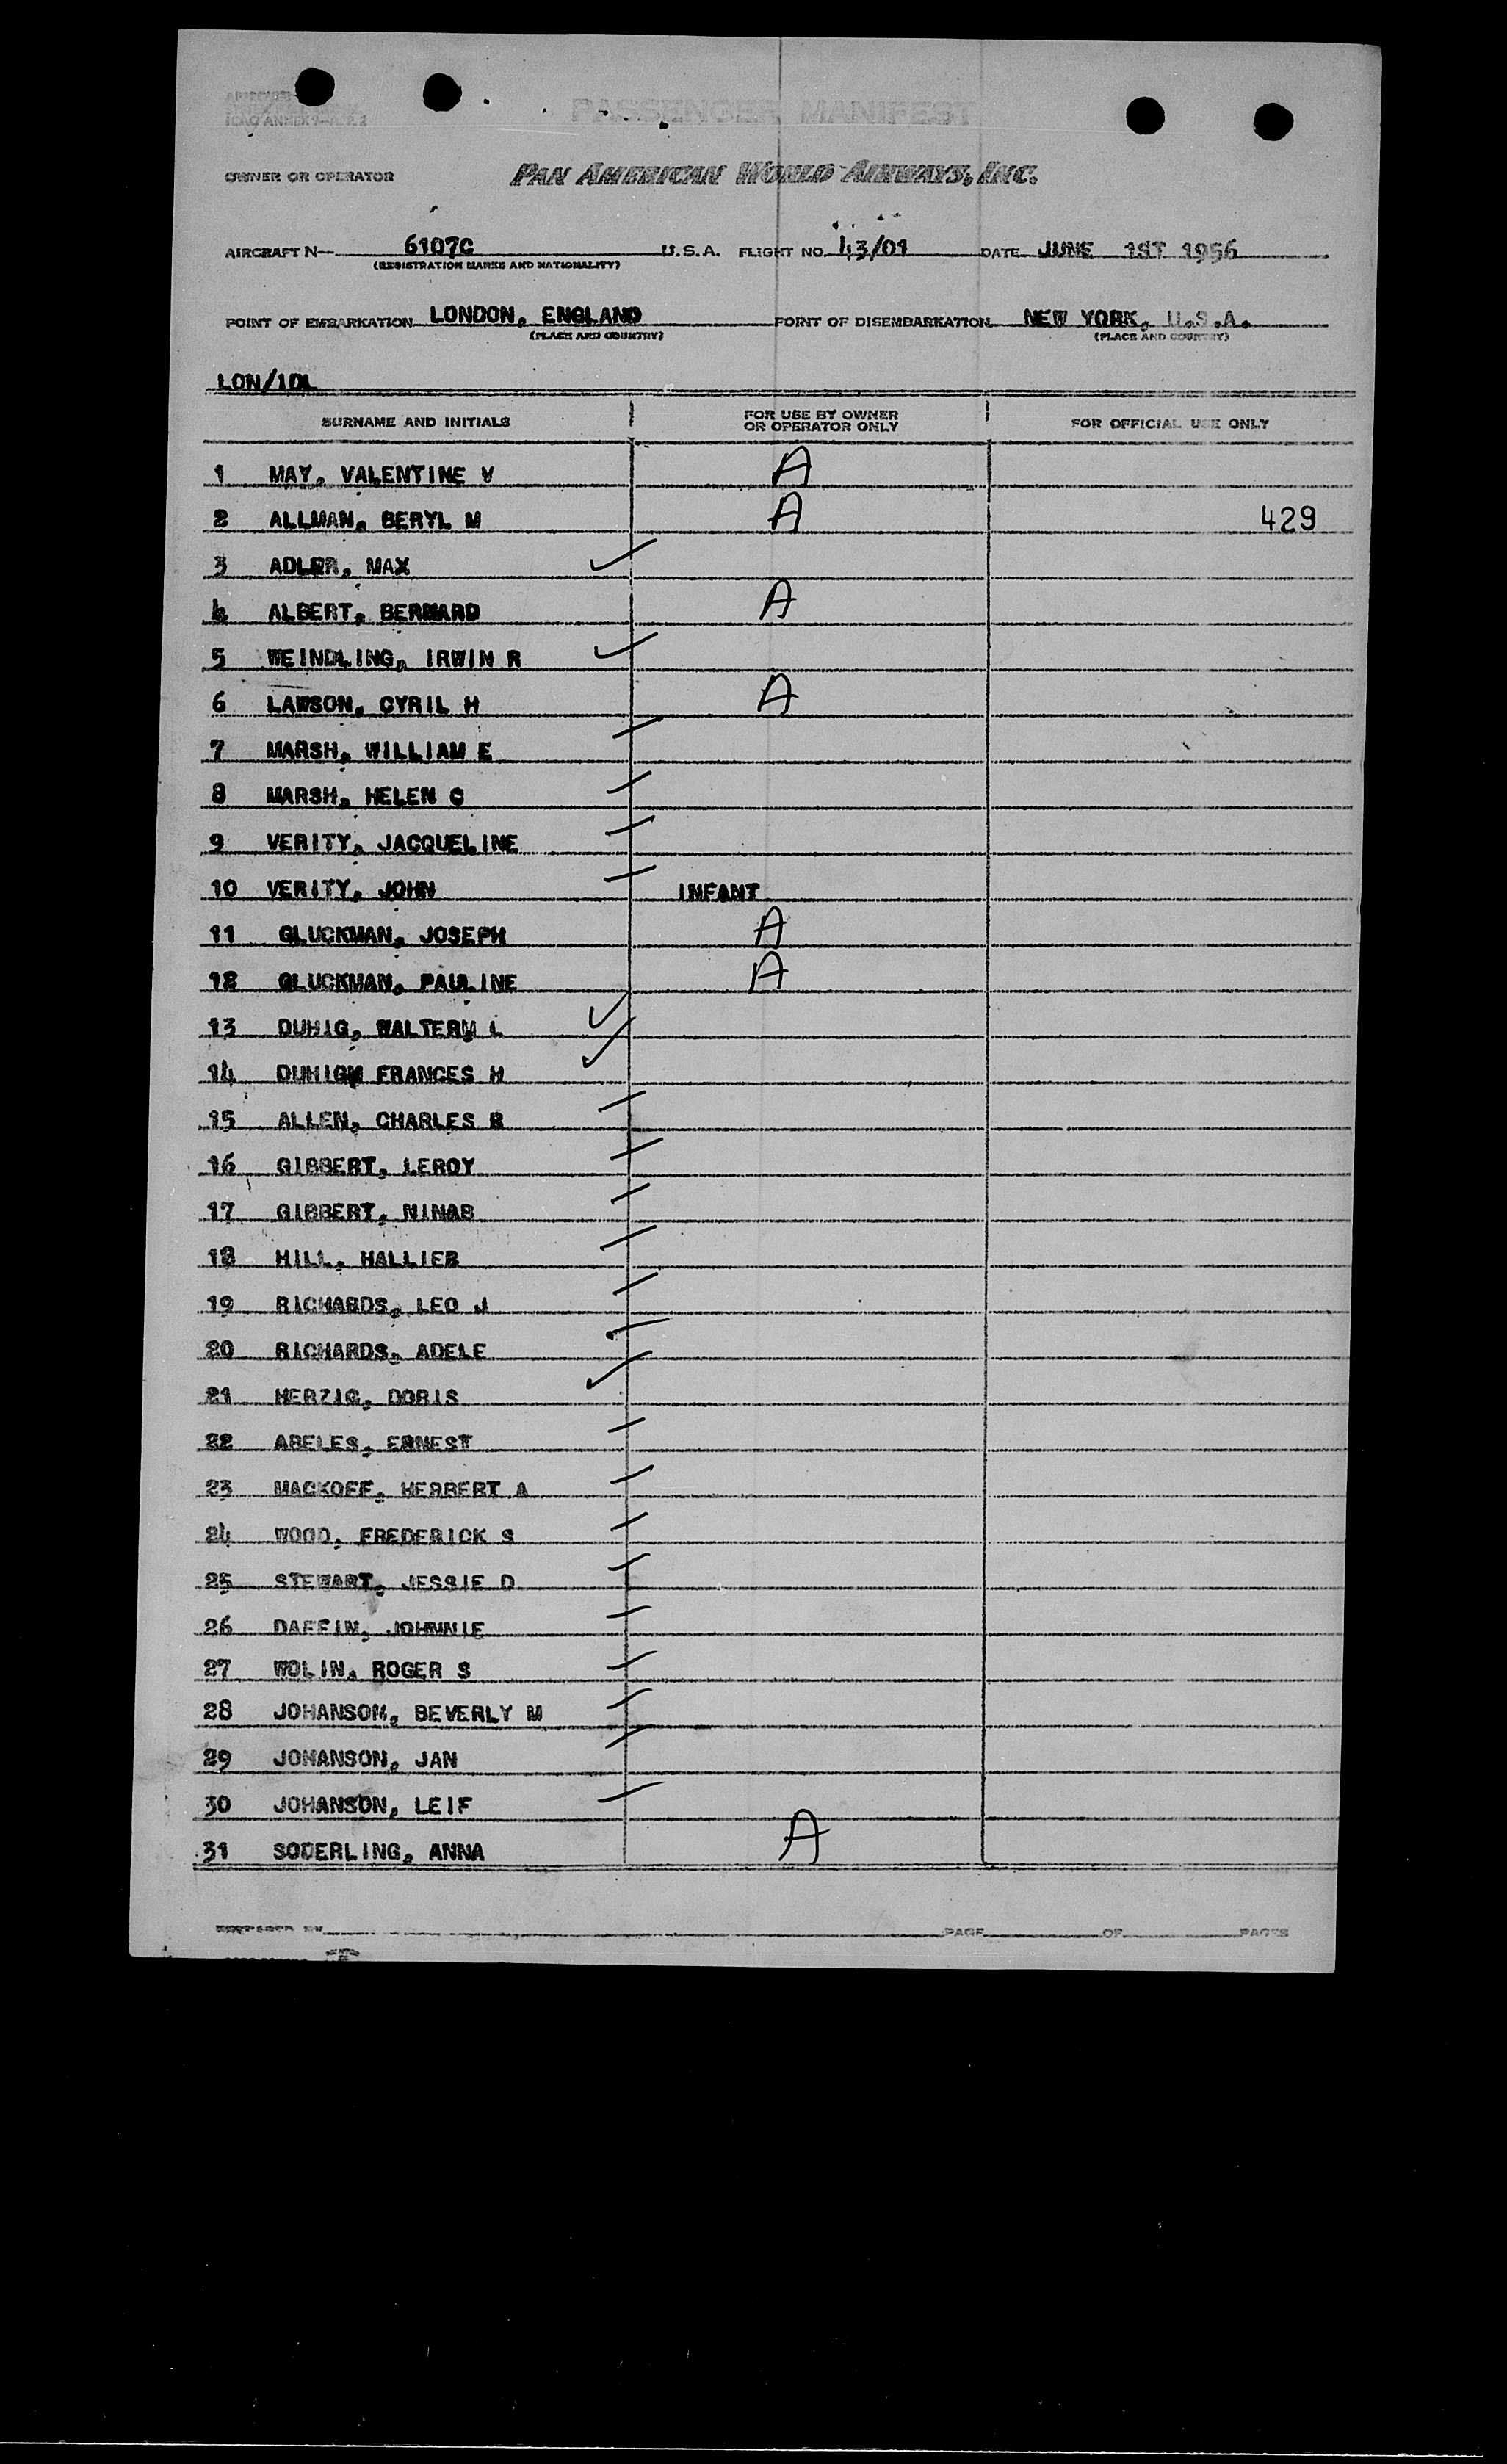 PASSENGER MANIFEST
ICAO ANNEX 9—APP. 2
OWNER OR OPERATOR PAN AMERICAN WORLD AIRWAYS, INC.
AIRCRAFT N— 6107C U.S.A. FLIGHT NO. 43/01 DATE JUNE 1ST 1956
(REGISTRATION MARKS AND NATIONALITY)
POINT OF EMBARKATION LONDON, ENGLAND POINT OF DISEMBARKATION NEW YORK, U.S.A.
(PLACE AND COUNTRY) (PLACE AND COUNTRY)
LON/IDL
SURNAME AND INITIALS FOR USE BY OWNER OR OPERATOR ONLY FOR OFFICIAL USE ONLY
1 MAY, VALENTINE V A
2 ALLMAN, BERYL M A 429
3 ADLER, MAX
4 ALBERT, BERNARD A
5 WEINDLING, IRWIN R
6 LAWSON, CYRIL H A
7 MARSH, WILLIAM E
8 MARSH, HELEN C
9 VERITY, JACQUELINE
10 VERITY, JOHN INFANT
11 GLUCKMAN, JOSEPH A
12 GLUCKMAN, PAULINE A
13 DUHIG, WALTERM L
14 DUHIGM FRANCES H
15 ALLEN, CHARLES B
16 GIBBERT, LEROY
17 GIBBERT, NINAB
18 HILL, HALLIEB
19 RICHARDS, LEO J
20 RICHARDS, ADELE
21 HERZIG, DORIS
22 ABELES, ERNEST
23 MACKOFF, HERBERT A
24 WOOD, FREDERICK S
25 STEWART, JESSIE D
26 DAFFIN, JOHNNIE
27 WOLIN, ROGER S
28 JOHANSON, BEVERLY M
29 JOHANSON, JAN
30 JOHANSON, LEIF
31 SODERLING, ANNA A
PREPARED BY PAGE OF PAGES